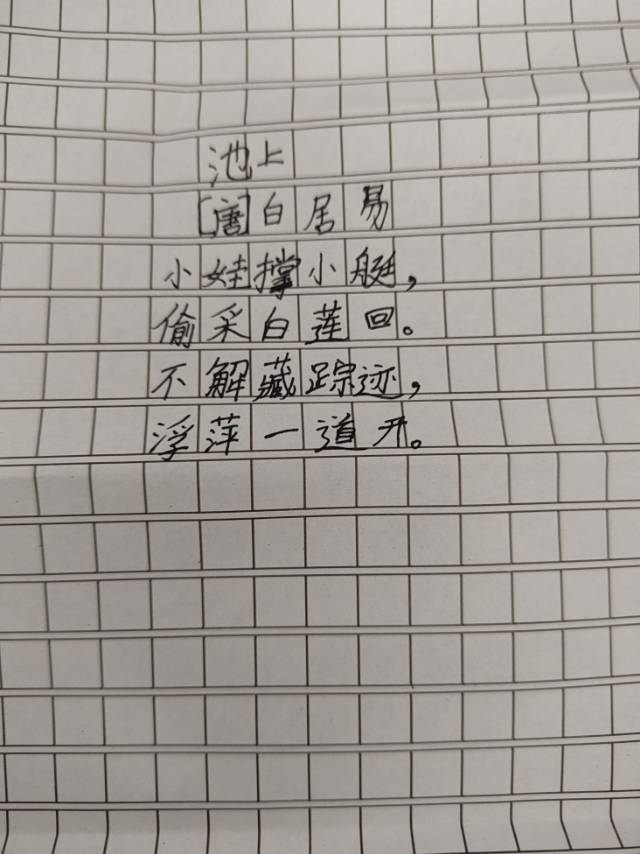 池上
[唐]白居易
小娃撑小艇，
偷采白莲回。
不解藏踪迹，
浮萍一道开。